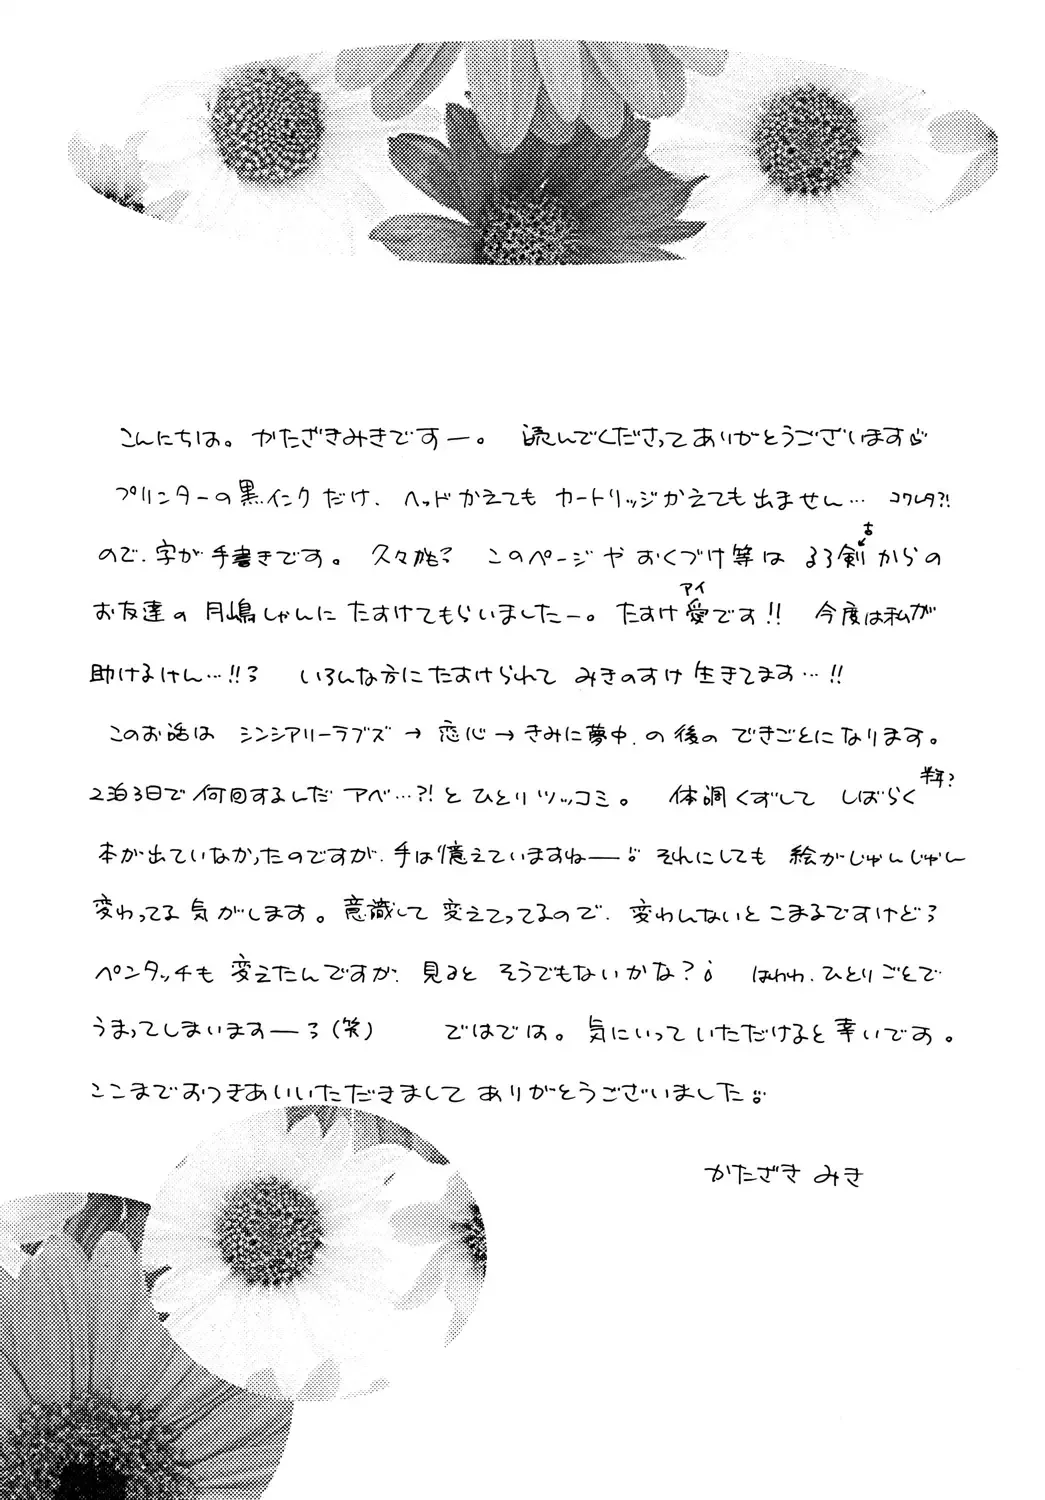 こんにちは。かたざきみきですー。読んでくださってありがとうございます
プリンターの黒インクだけ、ヘッドかえてもカートリッジかえても出ません… コワレタ?!
ので、字が手書きです。久々かも? このページやおくづけ等はるろ剣からの
古
お友達の月嶋しゃんにたすけてもらいましたー。たすけ愛です!! 今度は私が
アイ
助けるけん…!!ろ いろんな方にたすけられてみきのすけ生きてます…!!
このお話はシンシアリーラブズ→恋心→きみに夢中.の後のできごとになります。
2泊3日で何回するしだアベ…?!とひとりツッコミ。体調くずしてしばらく
半年?
本が出ていなかったのですが、手は憶えていますねー それにしても絵がじゃんじゃん
変わってる気がします。意識して変えてってるので、変わんないとこまるですけどろ
ペンタッチも変えたんですが、見るとそうでもないかな? はわわ、ひとりごとで
うまってしまいますーろ(笑) ではでは。気にいっていただけると幸いです。
ここまでおつきあいいただきましてありがとうございました
かたざき みき